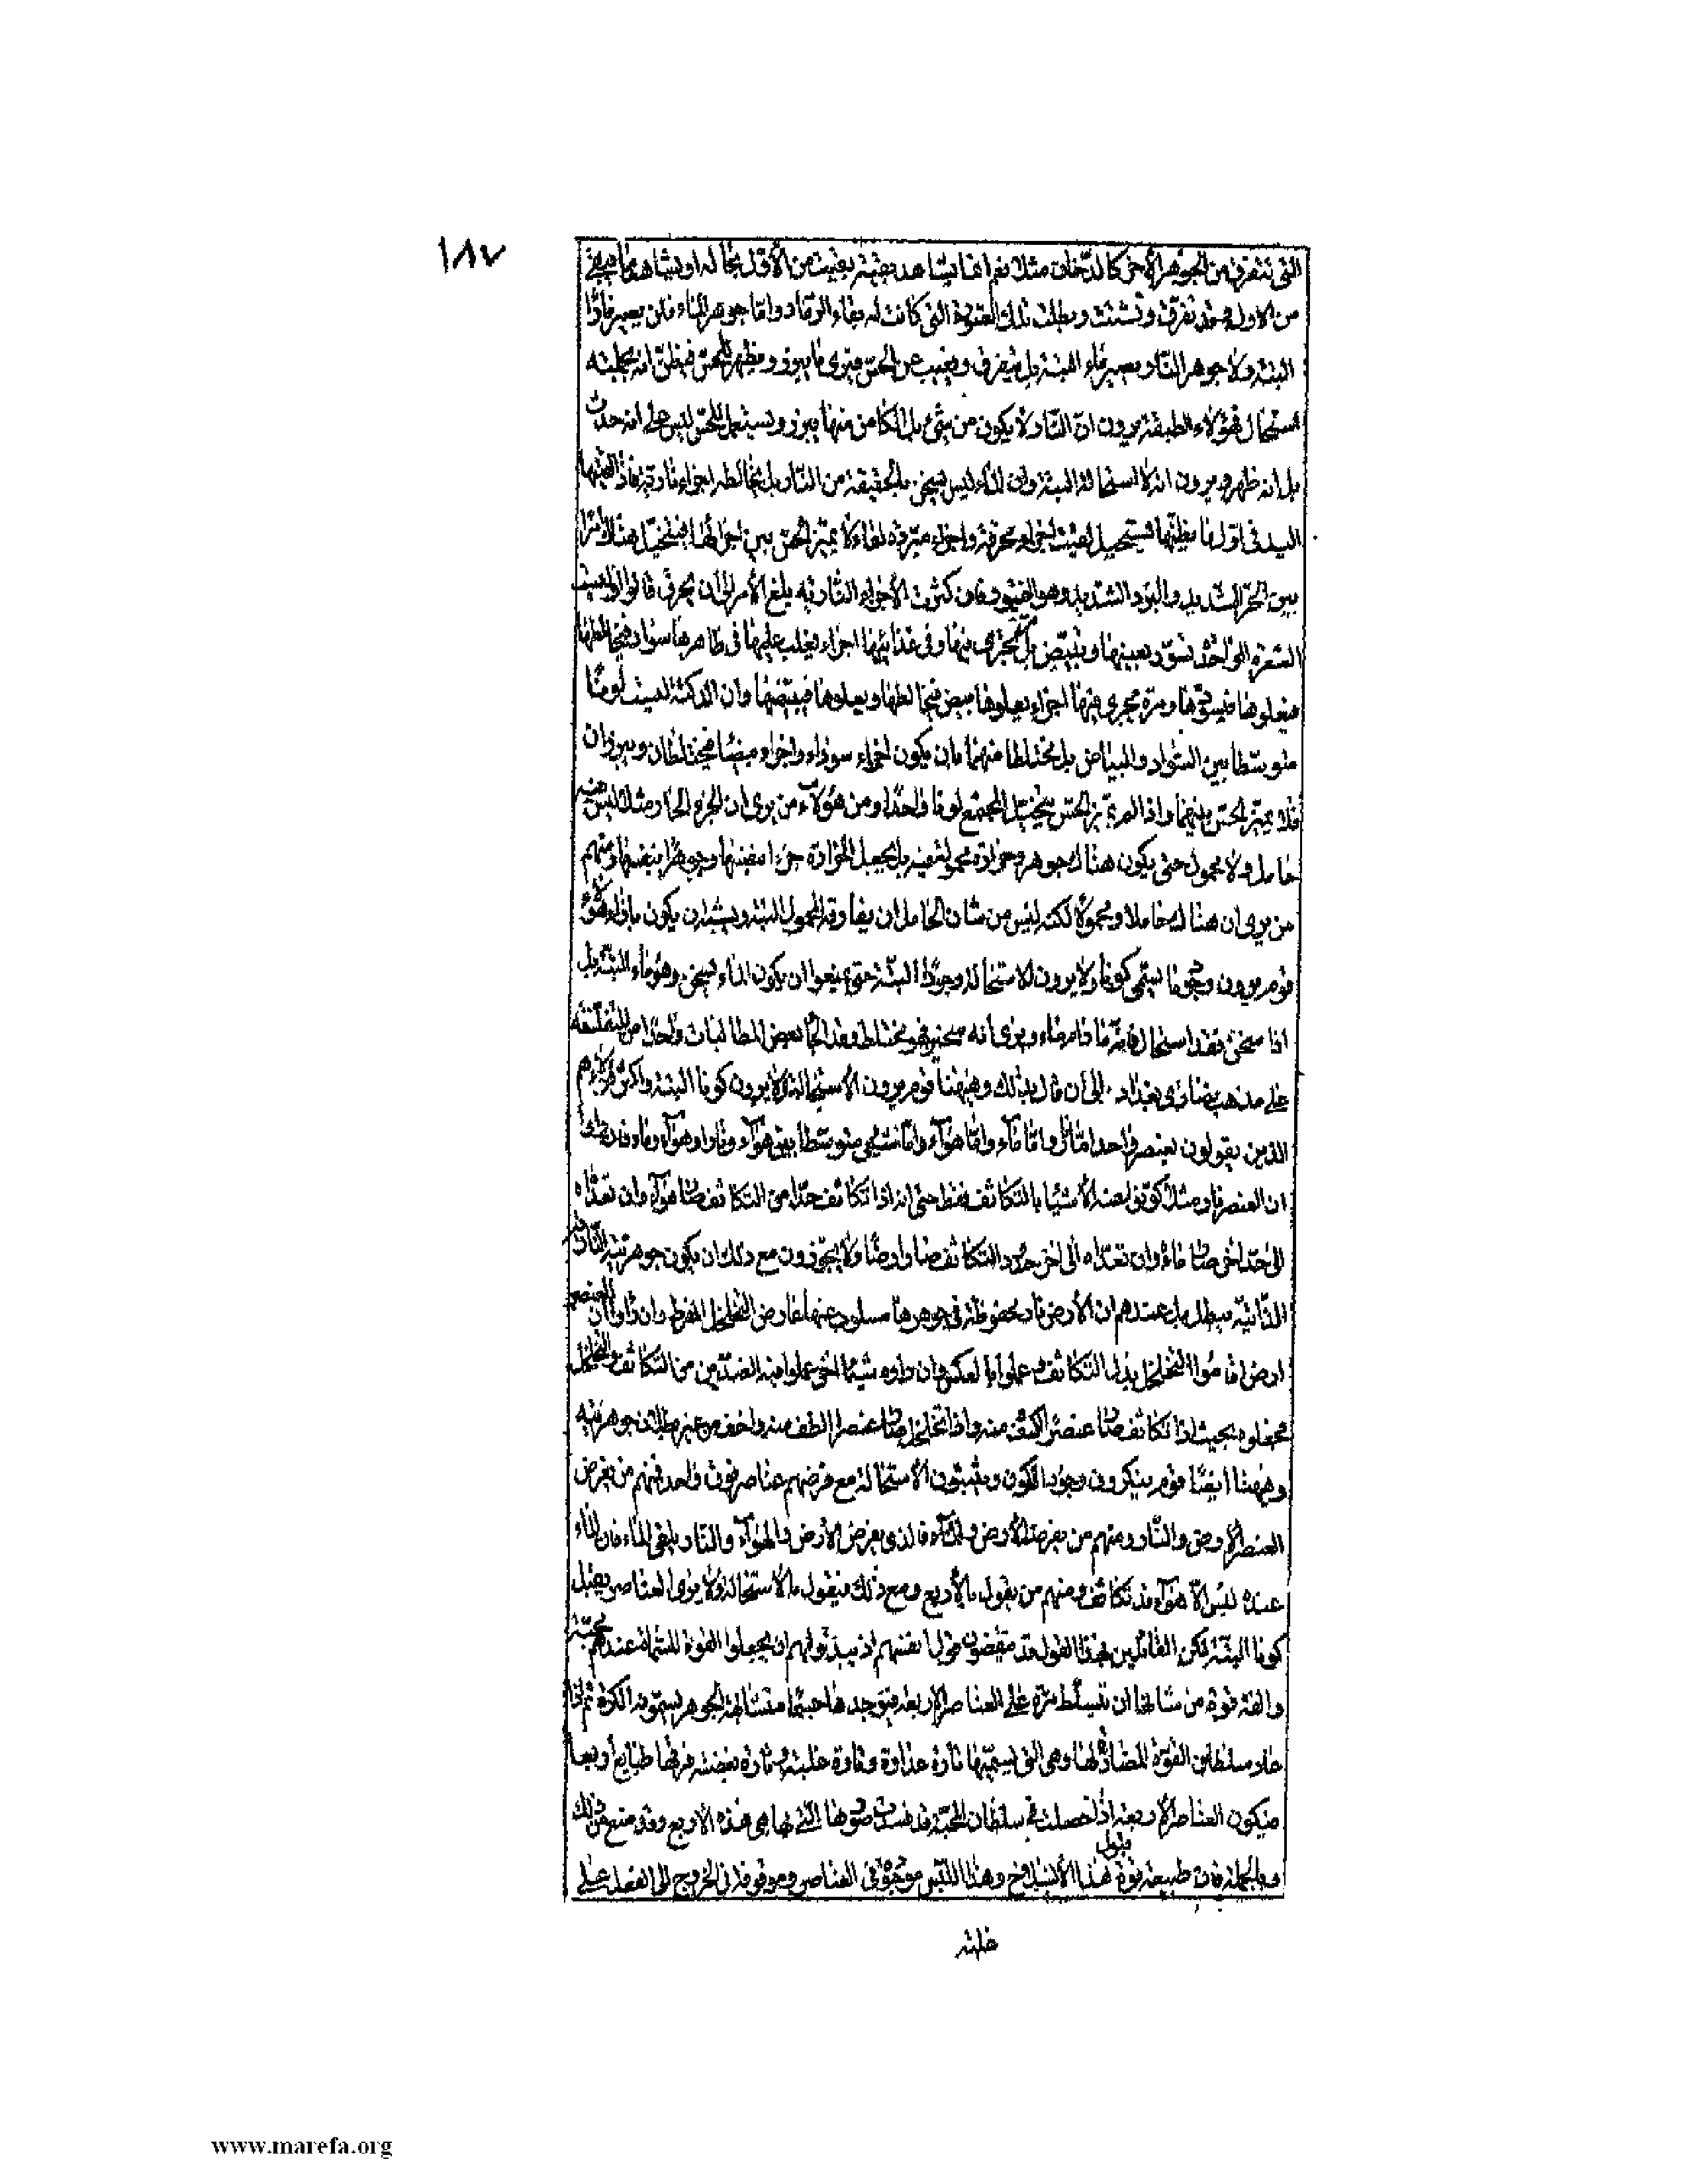 ١٨٧
التى تتفرق من الجوهر الأخر كالدخان مثلا نعم انما يشاهد بقية بقيت من الأول بحاله او يشاهد ما يبقى
من الاول وقد تفرق وتشتت وبطلت تلك القوة التى كانت له بقاء الرماد واما جوهر الماء فلن يصير نارا
البتة ولا جوهر النار يصير ماء البتة بل يتفرق ويغيب عن الحس فيرى ما يبرز ويظهر للحس فيظن انه بجملته
استحال فهؤلاء الطبقة يرون ان النار لا يكون من شئ بل الكامن منها يبرز ويستعمل للحس ليس على انه حدث
بل انه ظهر ويرون انه لا استحالة البتة وان الماء ليس يسخن بالحقيقة من النار بل يخالطه اجزاء نارية فاذا لقيتها
اليد فى اول ما يظنها تستحيل لقيت اجزاء محرقة واجزاء مبردة لقاء لا يميز الحس بين اجزائها فيتخيل هناك امرا
بين الحر الشديد والبرد الشديد وهو الفتور فان كثرت الأجزاء النارية بلغ الأمر الى أن يحرق قالوا وليست
الشعرة الواحدة تسود بعينها وتبيض بل تجرى فيها وفى غذائها اجزاء يغلب عليها فى ظاهرها سواد فيخالطها
فيعلوها فيسودها ومرة يجرى فيها اجزاء يعلوها بيض فيخالطها ويعلوها فيبيضها وان الدكنة ليست لونا
متوسطا بين السواد والبياض بل مختلطا منهما بان يكون اجزاء سوداء واجزاء بيضاء يختلطان ويبرزان
فلا يميز الحس بينهما واذا لم يميز الحس يتخيل المجتمع لونا واحدا ومن هؤلاء من يرى ان الجزء الحار مثلا ليس فيه
حامل ولا محمول حتى يكون هناك جوهر وحرارة محمولة فيه بل يجعل الحرارة جزءا بنفسها وجوهرا بنفسها ومنهم
من يرى ان هناك حاملا ومحمولا لكنه ليس من شأن الحامل ان يفارقه المحمول البتة ويشبه ان يكون بازاء هؤلاء
قوم يرون وجود ما يسمى كونا ولا يرون للاستحالة وجودا البتة حتى يمنعوا ان يكون الماء يسخن وهو ماء البتة بل
اذا سخن فقد استحال
على مذهب نصارى بغداد الى أن قال بذلك وههنا قوم يرون الاستحالة ولا يرون كونا البتة واكثر هؤلاء هم
الذين يقولون بعنصر واحد اما نار واما ماء واما هواء واما شئ متوسط بين هواء ونار او هواء وماء فان رأوا
ان العنصر نار مثلا كونوا عنه الأشياء بالتكاثف فقط حتى انه اذا تكاثف حدا من التكاثف صار هواء وان تعداه
الى حد اخر صار ماء وان تعداه الى اخر حدود التكاثف صار ارضا ولا يجوزون مع ذلك ان يكون جوهرية النارية
الذاتية يبطل بل عندهم ان الأرض نار محفوظة فى جوهرها مسلوب عنها عارض التخلخل المفرط وان رأوا ان العنصر
ارض اقاموا التخلخل بدل التكاثف وعملوا بالعكس وان رأوه شيئا اخر عملوا فيه الضدين من التكاثف والتخلخل
فجعلوه بحيث اذا تكاثف صار عنصرا اكثف منه واذا تخلخل صار عنصرا الطف منه واخف من غير بطلان جوهريته
وههنا ايضا قوم ينكرون وجود الكون ويثبتون الاستحالة مع فرضهم عناصر فوق واحد فمنهم من يفرض
العنصر الارض والنار ومنهم من يفرضه الأرض والماء فالذى يفرض الأرض والهواء والنار يلغى الماء فان الماء
عنده ليس الا هواء قد تكاثف ومنهم من يقول بالأربع ومع ذلك فيقول بالاستحالة ولا يرى العناصر يقبل
كونا البتة لكن القائلين بهذا القول قد يناقضون قول انفسهم اذ يبدو لهم ان يجعلوا القوة المسماة عندهم محبة
والفة قوة من شأنها ان تتسلط مرة على العناصر الاربعة فيوحدها جسما متشابه الجوهر يسمونه الكرة ثم اذا
عاد سلطان القوة المضادة لها وهى التى يسمونها تارة عداوة وتارة غلبة وتارة بغضة فرقها طبايع اربعا
فيكون العناصر الاربعة اذا حصلت فى سلطان المحبة قد فسدت صورها التى بها هى هذه الاربع وقد منع من ذلك
وبالجملة فان طبيعة قوة قبول هذا الانسلاخ وهذا اللبس موجودة فى العناصر وموقوفة فى الخروج الى الفعل على
غلبة
www.marefa.org